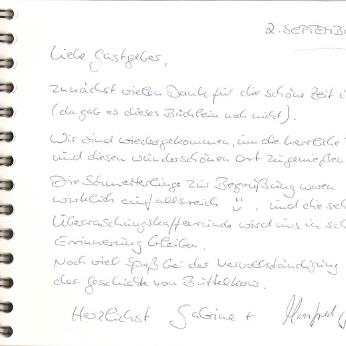 2. SEPTEMB
Liebe Gastgeber,
zunächst vielen Dank für die schöne Zeit i
(da gab es dieses Büchlein noch nicht).
Wir sind wiedergekommen, um die herrliche
und diesen wunderschönen Ort zu genießen
Die Schmetterlinge zur Begrüßung waren
wirklich einfallsreich ☺, und die sch
Überraschungskaffeerunde wird uns in sch
Erinnerung bleiben.
Noch viel Spaß bei der Vervollständigung
der Geschichte von Büttelkow.
Herzlichst Sabine + Manfred